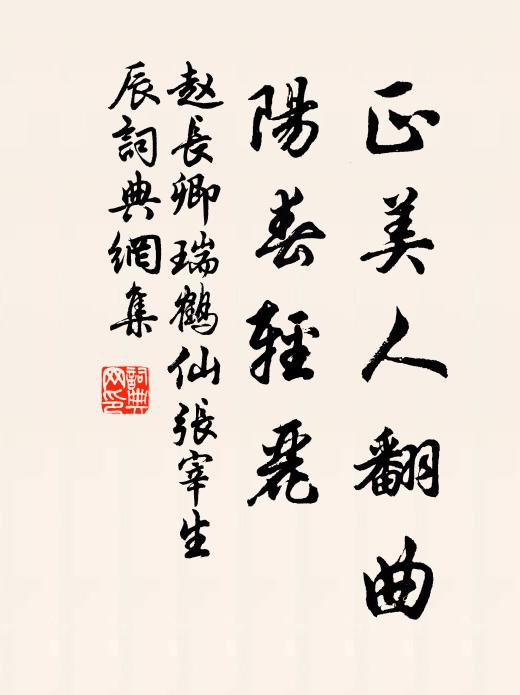 正美人翻曲
陽春輕麗
赵長卿瑞鶴仙張宰生
辰詞典網集
詞典
网印